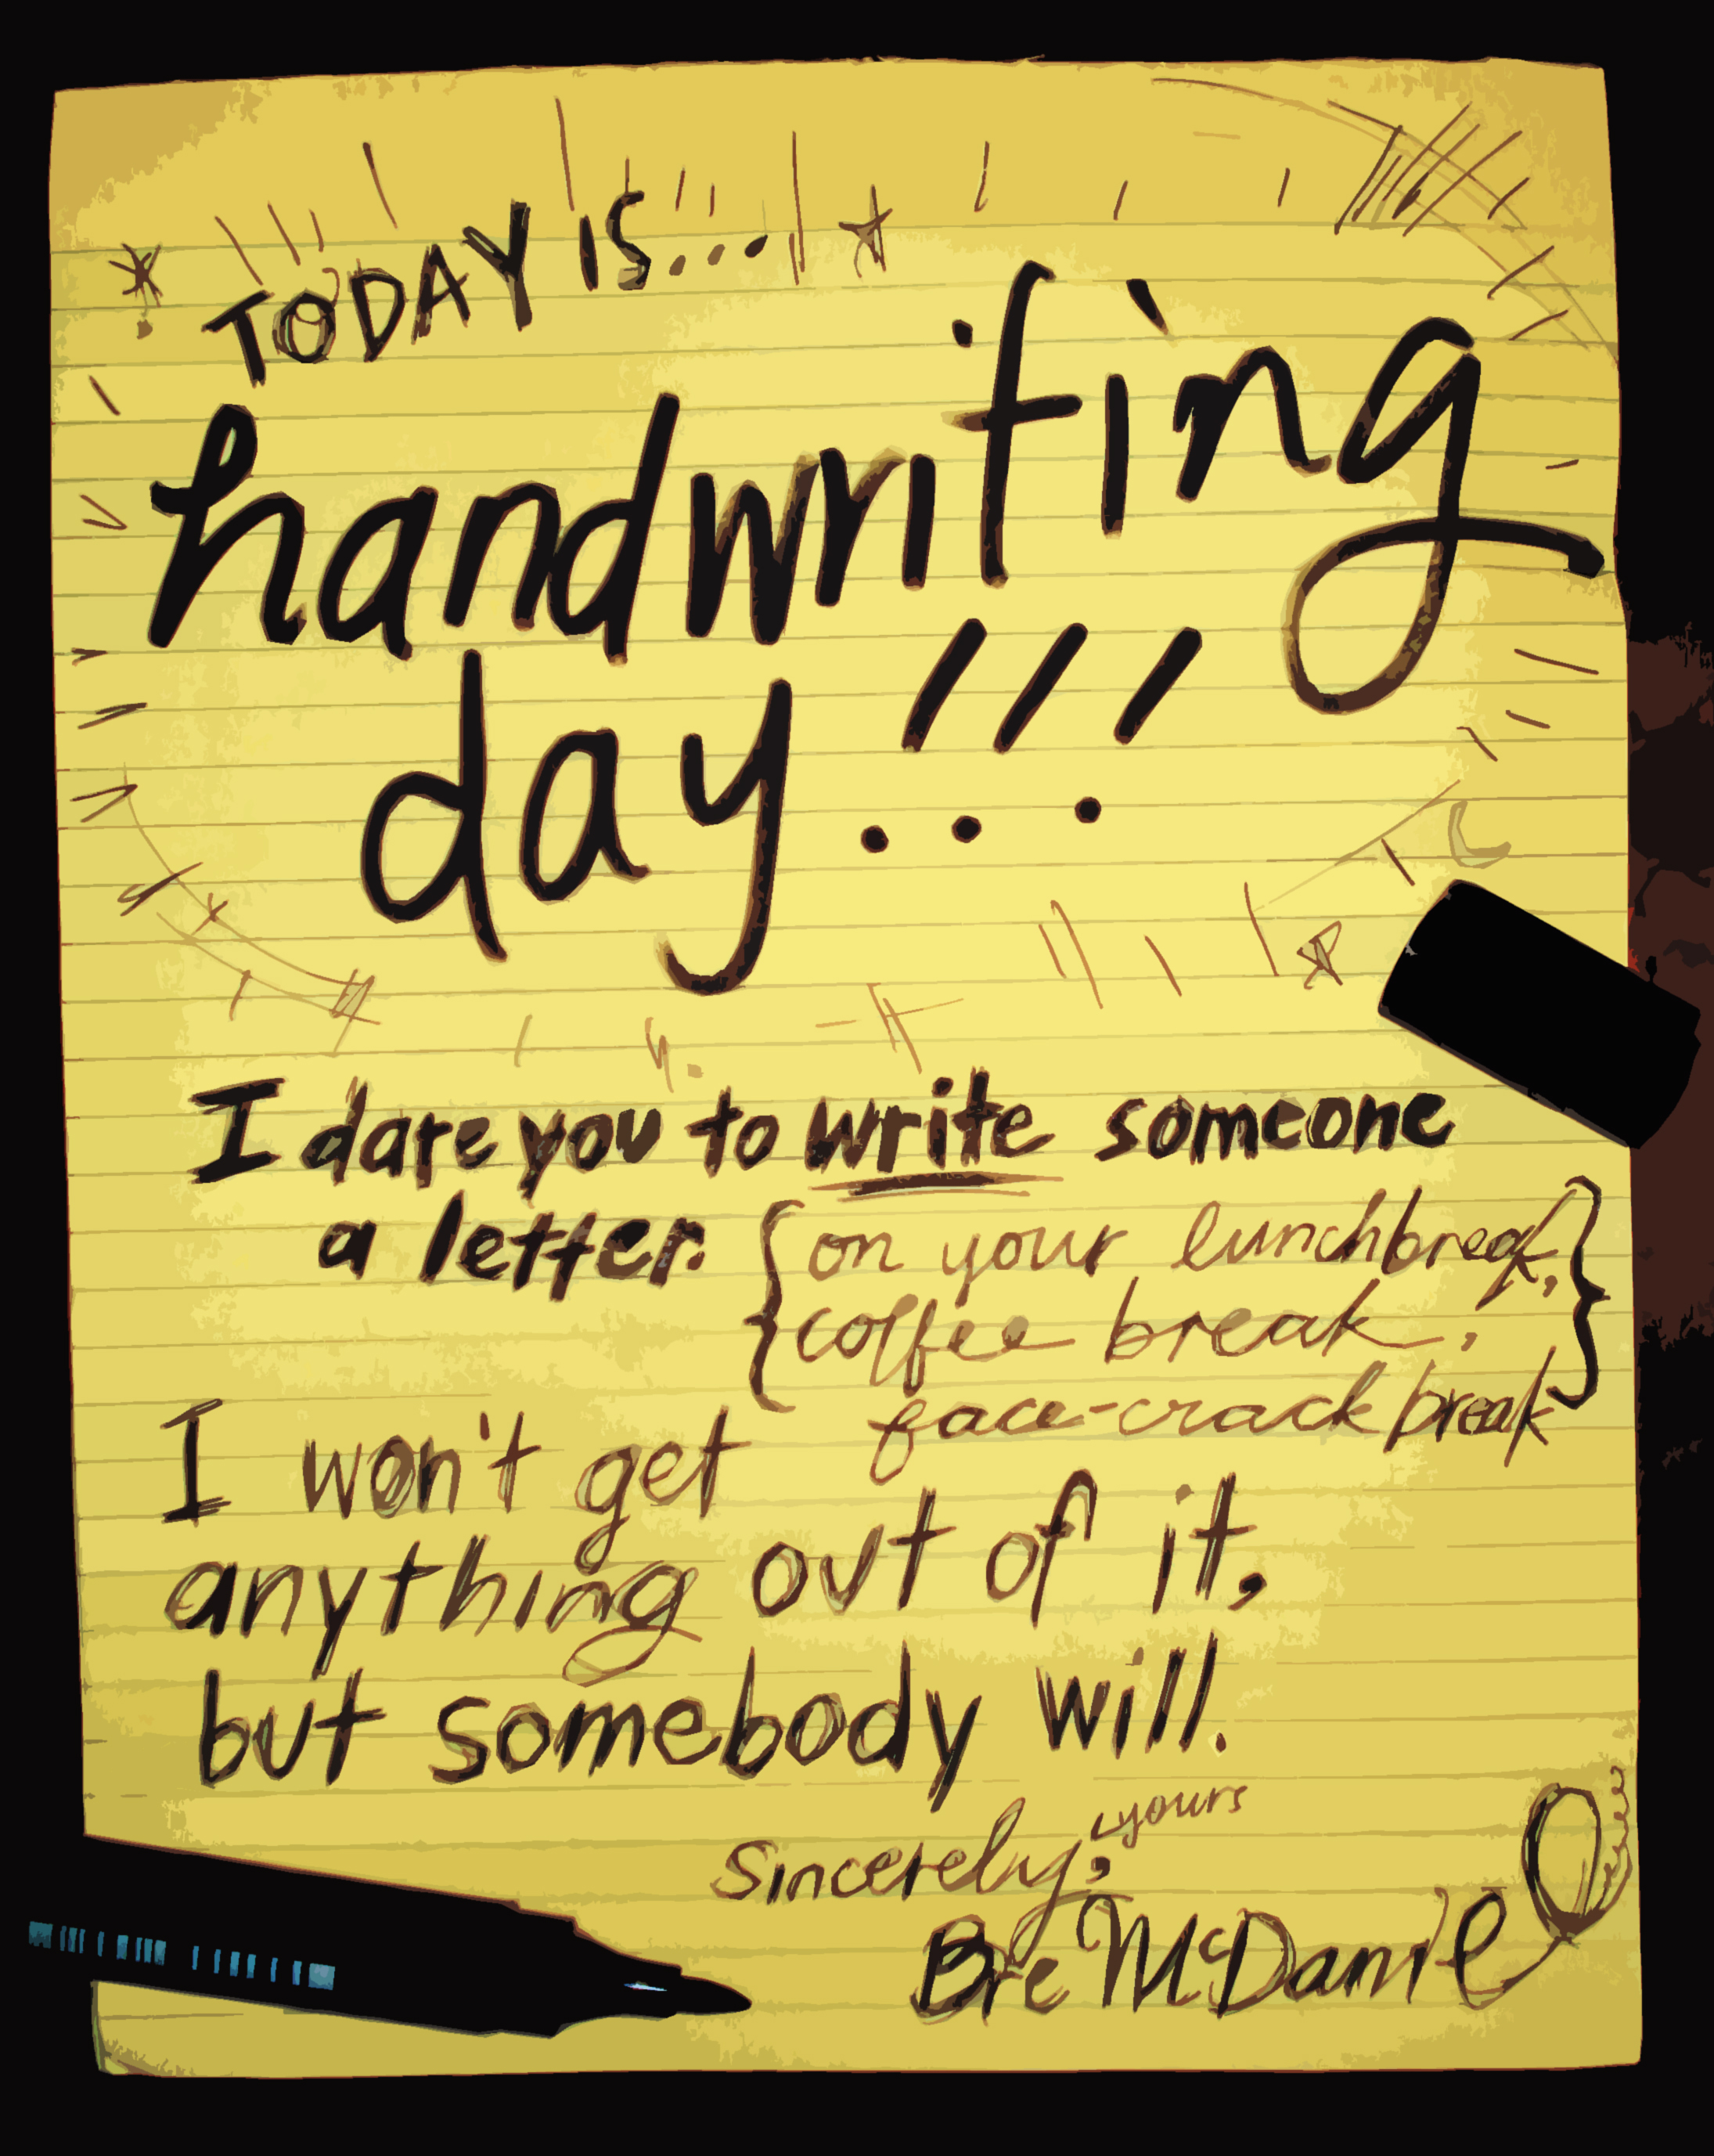 TODAY IS...
handwriting
day!!!
I dare you to write someone
a letter. {on your lunchbreak,
coffee break,
face-crack break}
I won't get
anything out of it,
but somebody will.
Sincerely, yours
Bre McDaniel